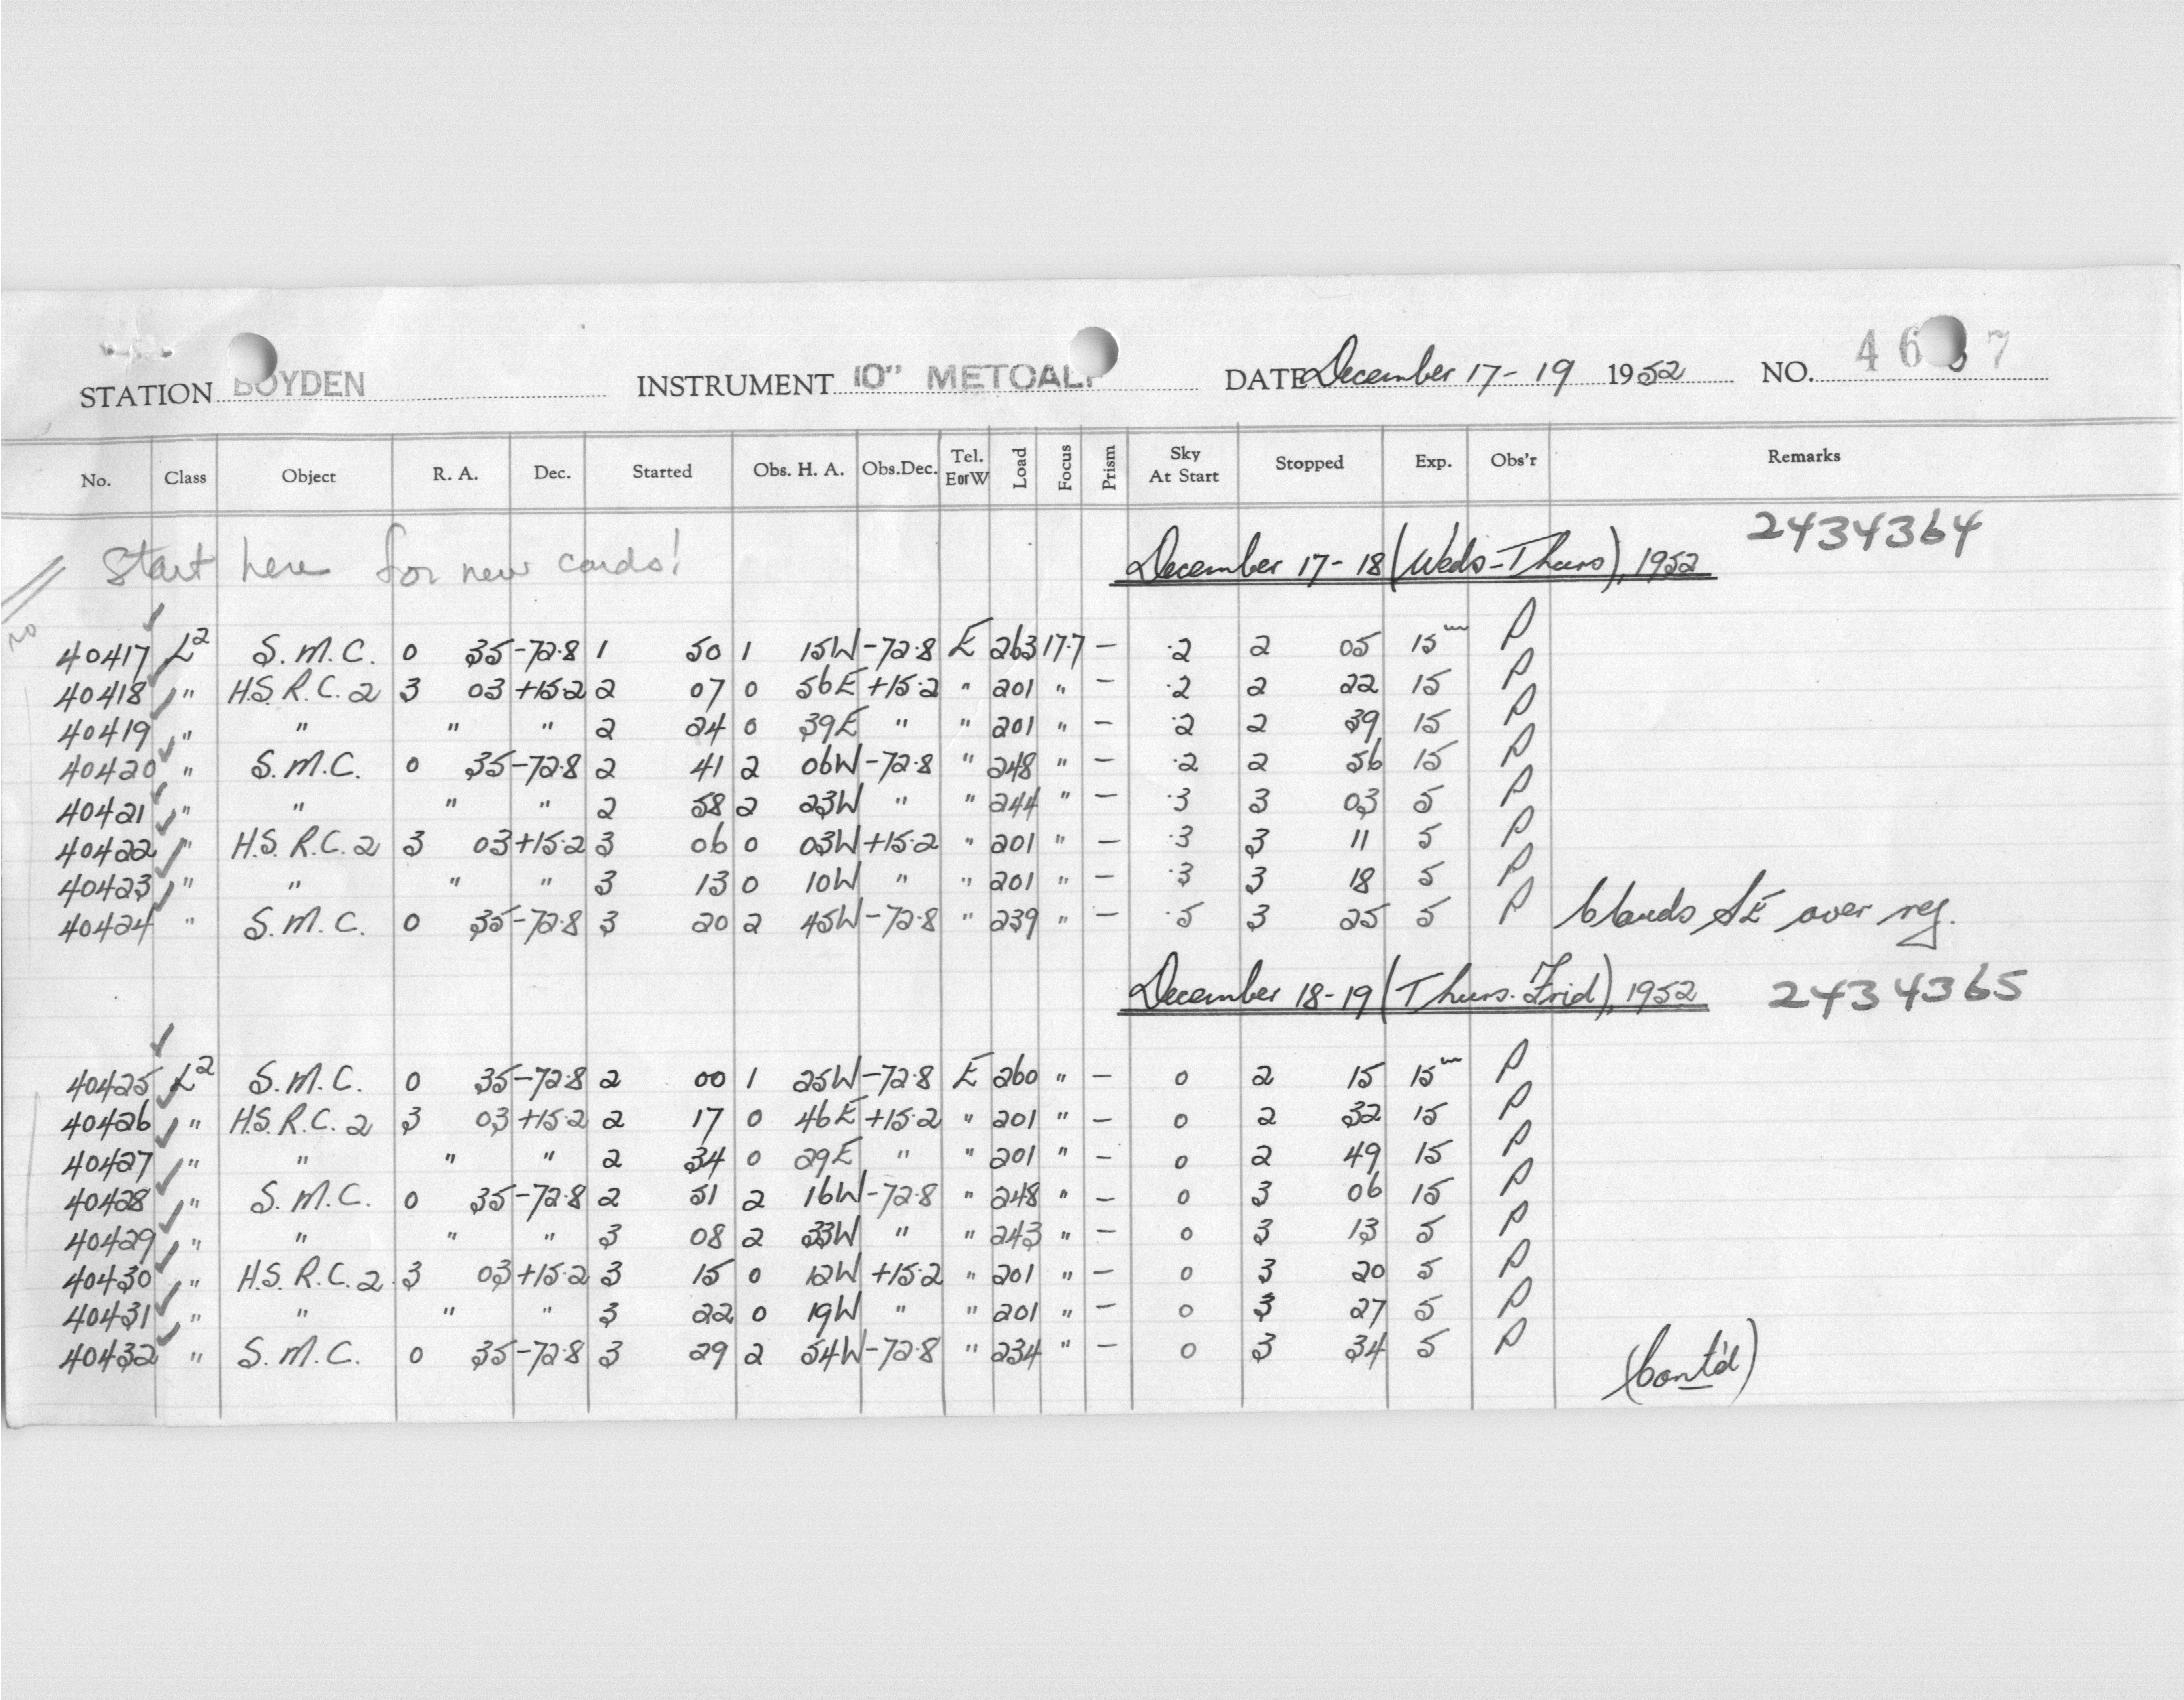 STATION BOYDEN INSTRUMENT 10" METCALF DATE December 17-19 1952 NO. 46 7
No. Class Object R. A. Dec. Started Obs. H. A. Obs.Dec. Tel. E or W Load Focus Prism Sky At Start Stopped Exp. Obs'r Remarks
Start here for new cards! December 17-18 (Weds-Thurs), 1952 2434364
NO
40417 L² S.M.C. 0 35 -72.8 1 50 1 15W -72.8 E 263 17.7 - .2 2 05 15m P
40418 " H.S.R.C. 2 3 03 +15.2 2 07 0 56E +15.2 " 201 " - .2 2 22 15 P
40419 " " " " 2 24 0 39E " " 201 " - .2 2 39 15 P
40420 " S.M.C. 0 35 -72.8 2 41 2 06W -72.8 " 248 " - .2 2 56 15 P
40421 " " " " 2 58 2 23W " " 244 " - .3 3 03 5 P
40422 " H.S.R.C. 2 3 03 +15.2 3 06 0 03W +15.2 " 201 " - .3 3 11 5 P
40423 " " " " 3 13 0 10W " " 201 " - .3 3 18 5 P
40424 " S.M.C. 0 35 -72.8 3 20 2 45W -72.8 " 239 " - .5 3 25 5 P Clouds SE over reg.
December 18-19 (Thurs. Frid), 1952 2434365
40425 L² S.M.C. 0 35 -72.8 2 00 1 25W -72.8 E 260 " - 0 2 15 15m P
40426 " H.S.R.C. 2 3 03 +15.2 2 17 0 46E +15.2 " 201 " - 0 2 32 15 P
40427 " " " " 2 34 0 29E " " 201 " - 0 2 49 15 P
40428 " S.M.C. 0 35 -72.8 2 51 2 16W -72.8 " 248 " - 0 3 06 15 P
40429 " " " " 3 08 2 33W " " 243 " - 0 3 13 5 P
40430 " H.S.R.C. 2 3 03 +15.2 3 15 0 12W +15.2 " 201 " - 0 3 20 5 P
40431 " " " " 3 22 0 19W " " 201 " - 0 3 27 5 P
40432 " S.M.C. 0 35 -72.8 3 29 2 54W -72.8 " 234 " - 0 3 34 5 P
(Cont'd)